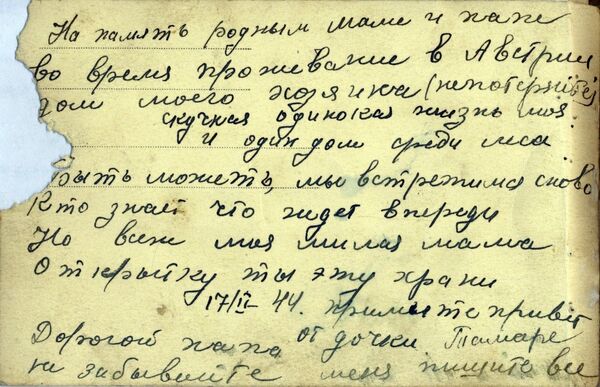 На память родным маме и папе
во время проживание в Австрии
дом моего хозяика (непотеряйте)
скучная одинокая жизнь моя
и один дом среди леса
быть можеть, мы встретимся снова
Кто знает что ждет впереди
Но всеж моя милая мама
Открытку ты эту храни
17/II 44. примите привет
Дорогой папа от дочки Тамаре
не забывайте меня пишите все